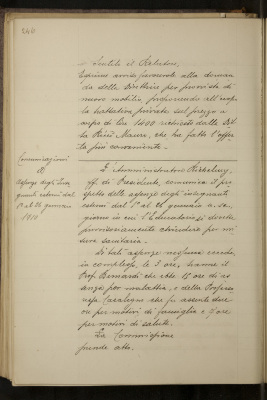 240
Sentito il Relatore,
Esprime avviso favorevole alla doman
da della Direttrice per provvista di
nuovo mobilio, proponendo all'uopo
la trattativa privata sul prezzo a
corpo di Lire 1400 richiesto dalla Dit
ta Rossi Mauro, che ha fatto l'offer
ta più conveniente.
Comunicazioni
di
assenze degli Inse
gnanti esterni dal
1º al 26 gennaio
1910
L'Amministratore
ff. di Presidente, comunica il pro
spetto delle assenze degli insegnanti
esterni dal 1º al 26 gennaio u. s.,
giorno in cui l'Educatorio si dovette
provvisoriamente chiudere per mi
sura sanitaria.
Di tali assenze nessuna eccede,
in complesso, le 3 ore, tranne il
Prof. Bernardi che ebbe 15 ore di as
senze per malattia, e della Professo
ressa che fu assente due
ore per motivi di famiglia e 3 ore
per motivi di salute.
La Commissione
prende atto.